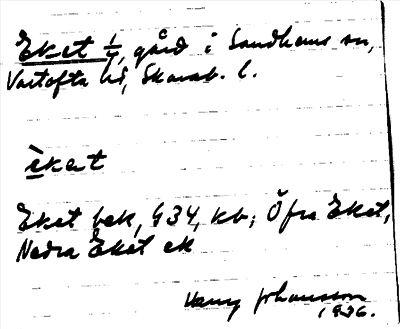 Eket 1/4, gård i Sandhems sn,
Vartofta hd, Skarab. l.
èkat
Eket bek, G34, kb; Öfra Eket,
Nedra Eket ek
Harry Johansson
1926.